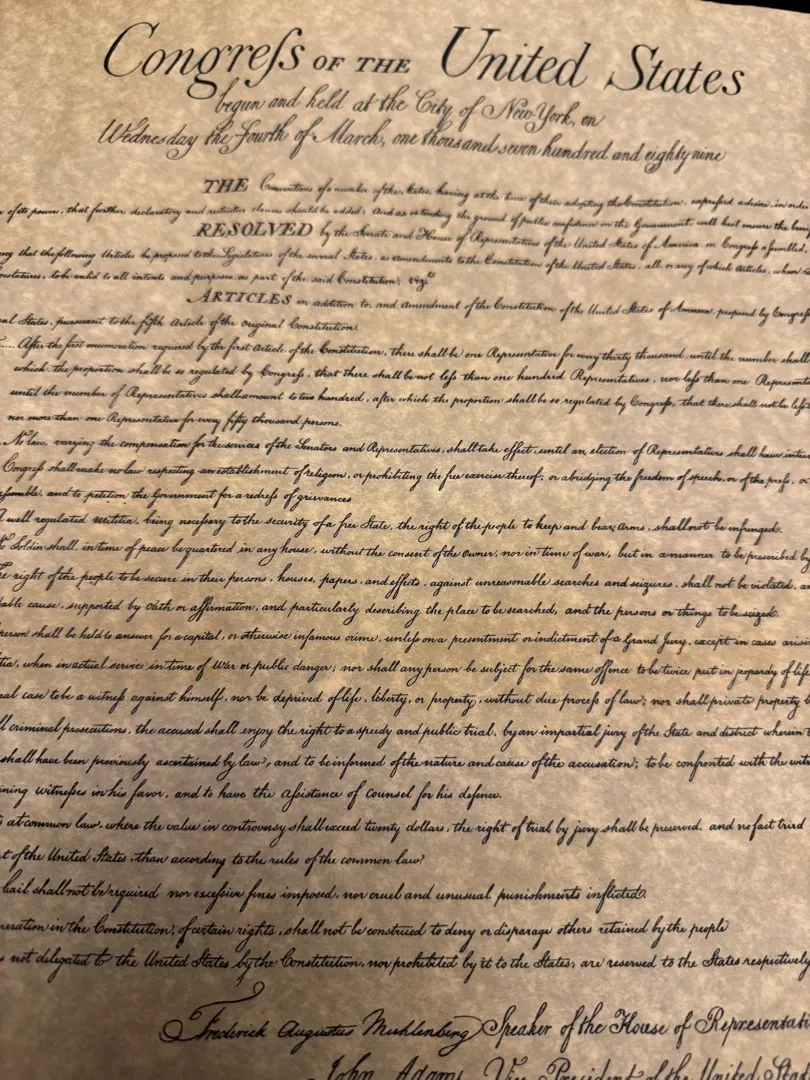 Congreſs OF THE United States
begun and held at the City of New-York, on
Wednesday the Fourth of March, one thousand seven hundred and eighty nine
THE Conventions of a number of the States, having at the time of their adopting the Constitution, expressed a desire, in order
of its powers, that further declaratory and restrictive clauses should be added: And as extending the ground of public confidence in the Government, will best ensure the
RESOLVED by the Senate and House of Representatives of the United States of America in Congreſs assembled,
that the following Articles be proposed to the Legislatures of the several States, as amendments to the Constitution of the United States, all or any of which Articles, when
to be valid to all intents and purposes, as part of the said Constitution; vizt
ARTICLES in addition to, and Amendment of the Constitution of the United States of America, proposed by Congreſs
States, pursuant to the fifth Article of the original Constitution.
After the first enumeration required by the first Article of the Constitution, there shall be one Representative for every thirty thousand, until the number shall
which, the proportion shall be so regulated by Congreſs, that there shall be not leſs than one hundred Representatives, nor leſs than one
until the number of Representatives shall amount to two hundred, after which the proportion shall be so regulated by Congreſs, that there shall not be leſs
nor more than one Representative for every fifty thousand persons.
No law, varying the compensation for the services of the Senators and Representatives, shall take effect, until an election of Representatives shall have
Congreſs shall make no law respecting an establishment of religion, or prohibiting the free exercise thereof; or abridging the freedom of speech, or of the preſs, or
and to petition the Government for a redreſs of grievances
A well regulated militia, being neceſsary to the security of a free State, the right of the people to keep and bear arms, shall not be infringed.
Soldier shall, in time of peace be quartered in any house, without the consent of the owner, nor in time of war, but in a manner to be prescribed by
right of the people to be secure in their persons, houses, papers, and effects, against unreasonable searches and seizures, shall not be violated,
cause, supported by Oath or affirmation, and particularly describing the place to be searched, and the persons or things to be seized.
person shall be held to answer for a capital, or otherwise infamous crime, unleſs on a presentment or indictment of a Grand Jury, except in cases
when in actual service in time of War or public danger; nor shall any person be subject for the same offence to be twice put in jeopardy of life
case to be a witneſs against himself, nor be deprived of life, liberty, or property, without due proceſs of law; nor shall private property
criminal prosecutions, the accused shall enjoy the right to a speedy and public trial, by an impartial jury of the State and district wherein
shall have been previously ascertained by law, and to be informed of the nature and cause of the accusation; to be confronted with the
witneſses in his favor, and to have the aſsistance of counsel for his defence.
at common law, where the value in controversy shall exceed twenty dollars, the right of trial by jury shall be preserved, and no fact tried
of the United States, than according to the rules of the common law.
bail shall not be required nor exceſsive fines imposed, nor cruel and unusual punishments inflicted.
in the Constitution, of certain rights, shall not be construed to deny or disparage others retained by the people
not delegated to the United States by the Constitution, nor prohibited by it to the States, are reserved to the States respectively
Frederick Augustus Muhlenberg Speaker of the House of
John Adams, Vice President of the United